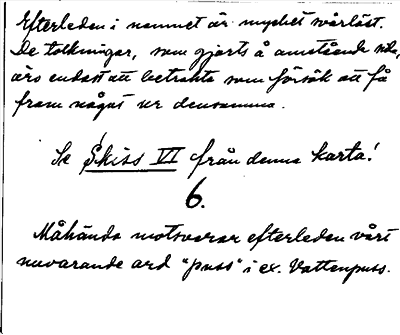 Efterleden i namnet är mycket svårläst.
De tolkningar, som gjorts å omstående sida,
äro endast att betrakta som försök att få
fram något ur densamma.
Se Skiss VI från denna karta!
6.
Måhända motsvarar efterleden vårt
nuvarande ord "puss" i ex. Vattenpuss.